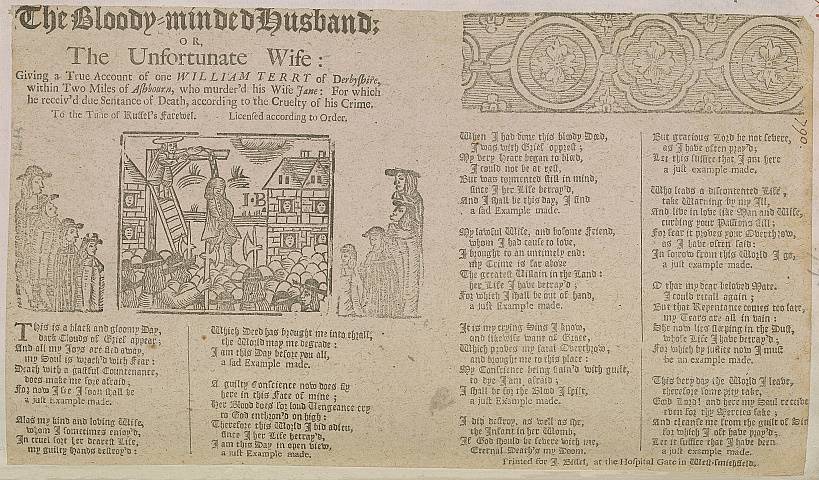 The Bloody-minded Husband;
OR,
The Unfortunate Wife:
Giving a True Account of one WILLIAM TERRY of Derbyshire,
within Two Miles of Ashbourn, who murder'd his Wife Jane: For which
he receiv'd due Sentance of Death, according to the Cruelty of his Crime.
To the Tune of Russel's Farewel. Licensed according to Order.
I·B
This is a black and gloomy Day,
dark Clouds of Grief appear;
And all my Joys are fled away,
my Soul is wrack'd with Fear:
Death with a gastful Countenance,
does make me sore afraid;
For now I see I soon shall be
a just Example made.
Alas my kind and loving Wife,
whom I sometimes enjoy'd,
In cruel sort her dearest Life,
my guilty Hands destroy'd:
Which Deed has brought me into thrall,
the World may me degrade:
I am this Day before you all,
a sad Example made.
A guilty Conscience now does fly
here in this Face of mine;
Her Blood does for loud Vengeance cry
to God enthron'd on high:
Therefore this World I bid adieu,
since I her Life betray'd,
I am this Day in open view,
a just Example made.
When I had done this bloody Deed,
I was with Grief opprest;
My very Heart began to bleed,
I could not be at rest,
But was tormented still in mind,
since I her Life betray'd,
And I shall be this day, I find
a sad Example made.
My lawful Wife, and bosome Friend,
whom I had cause to love,
I brought to an untimely end:
my Crime is far above
The greatest Villain in the Land:
her Life I have betray'd;
For which I shall be out of hand,
a just Example made.
It is my crying Sins I know,
and likewise want of Grace,
Which proves my fatal Overthrow,
and brought me to this place:
My Conscience being stain'd with guilt,
to dye I am afraid;
I shall be for the Blood I spilt,
a just Example made.
I did destroy, as well as she,
the Infant in her Womb,
If God should be severe with me,
Eternal Death's my Doom.
But gracious Lord be not severe,
as I have often pray'd;
Let this suffice that I am here
a just example made.
Who leads a discontented Life,
take Warning by my Ill,
And live in love like Man and Wife,
curbing your Passions still;
For fear it proves your Overthrow,
as I have often said:
In sorrow from this World I go,
a just example made.
O that my dear beloved Mate,
I could recall again;
But that Repentance comes too late,
my Tears are all in vain:
She now lies sleeping in the Dust,
whose Life I have betray'd;
For which by justice now I must
be an example made.
This very day the World I leave,
therefore some pity take,
Good Lord! and here my Soul receive
even for thy Mercies sake;
And cleanse me from the guilt of Sin
for which I oft have pray'd;
Let it suffice that I have been
a just example made.
Printed for J. Bissel, at the Hospital Gate in West-smithfield.
790.